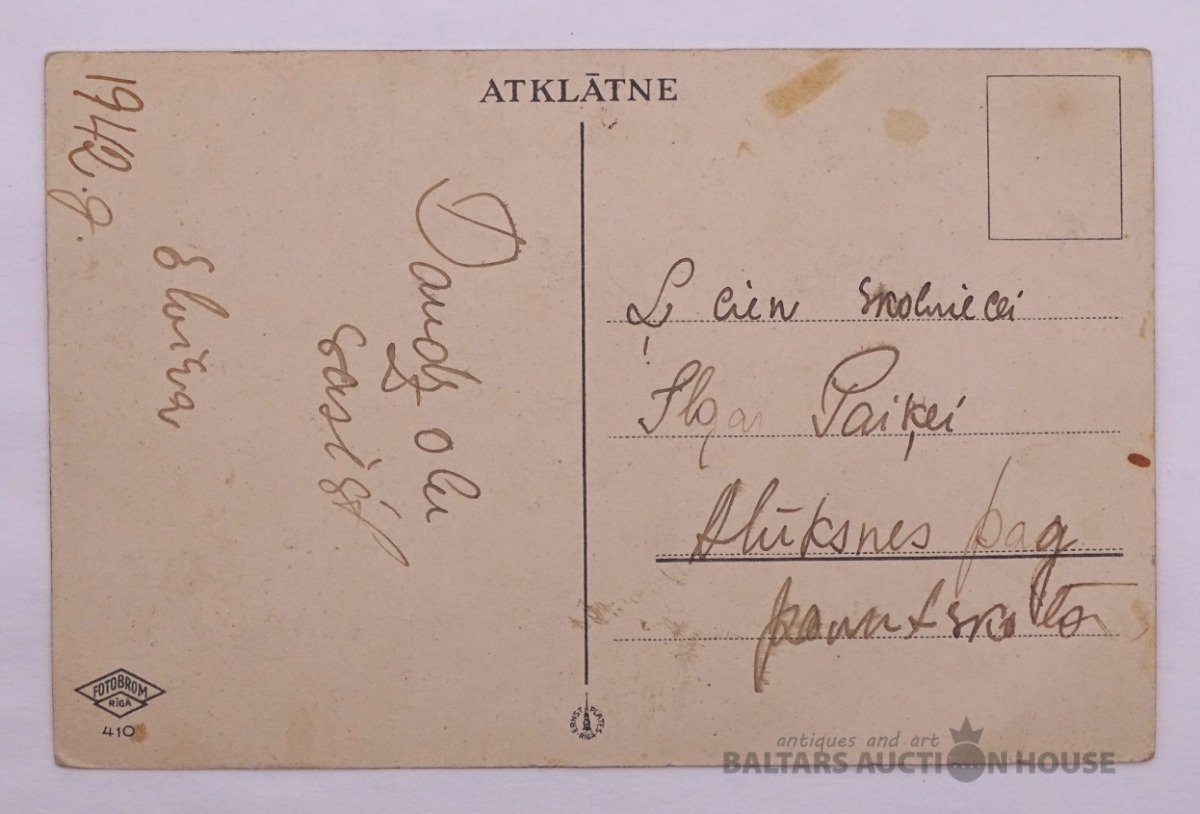 ATKLĀTNE
1942.g.
Daudz olu
Elvira
Ļ cien skolniecei
Ilgai Paiķei
Alūksnes pag
pamatskolā
FOTOBROM
RĪGA
410
ERNST PLATES
RĪGA
antiques and art
BALTARS AUCTION HOUSE